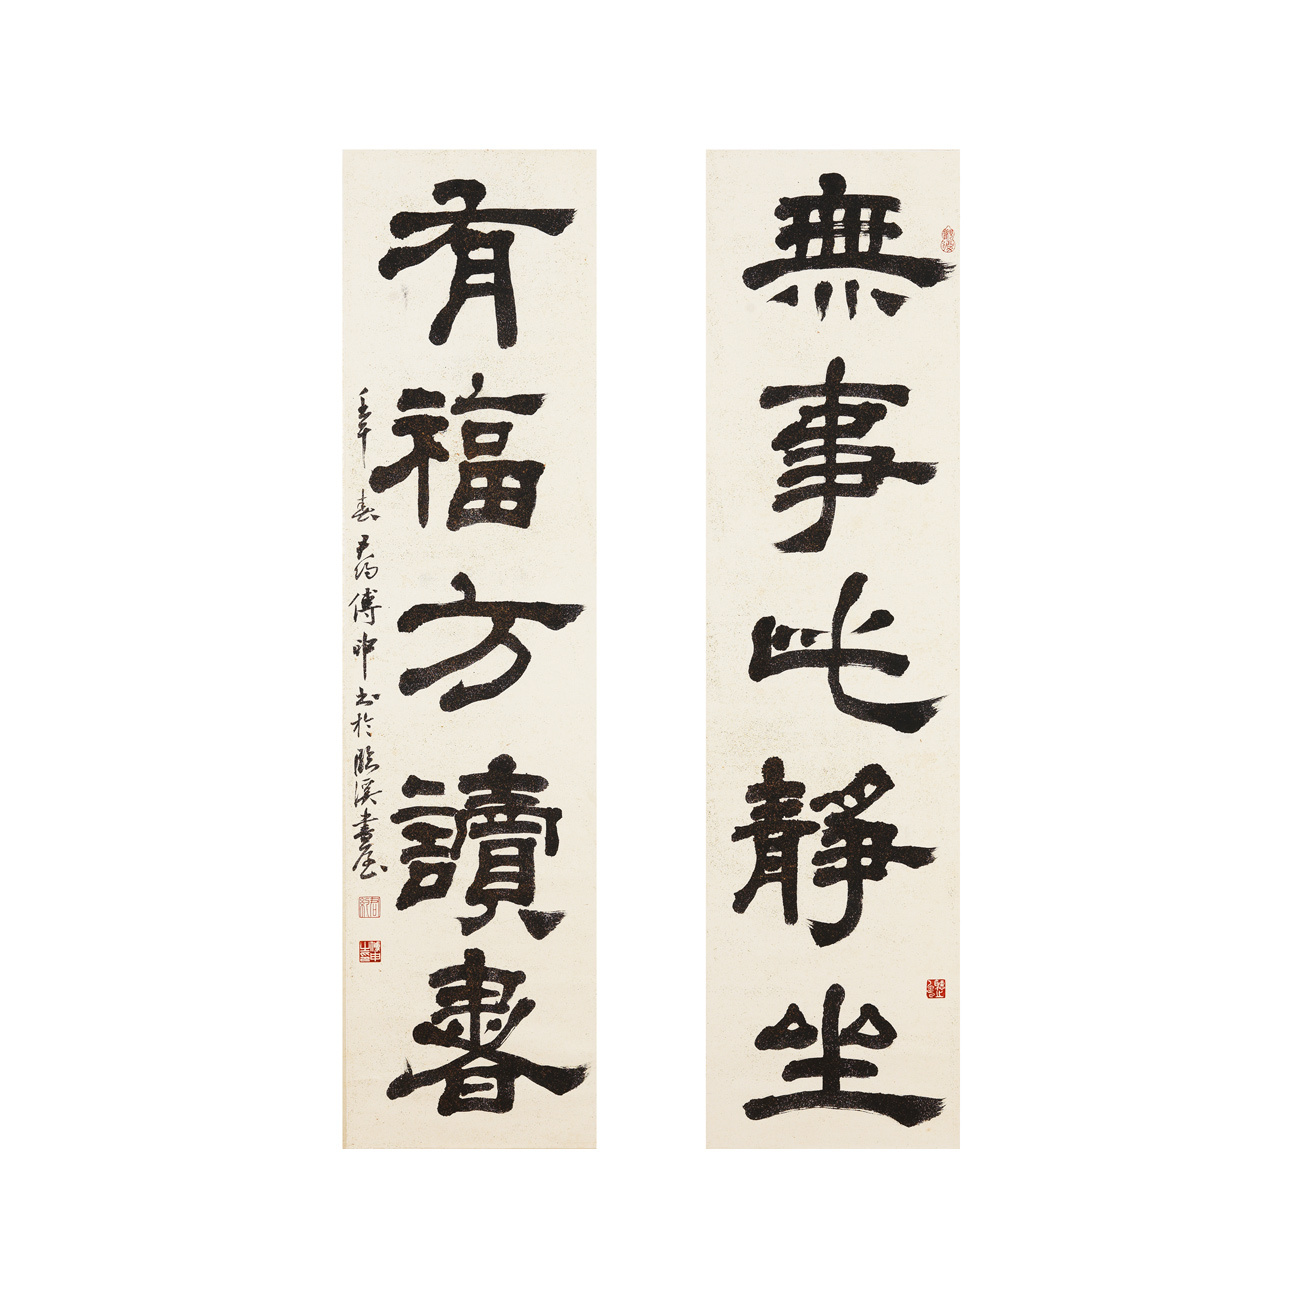 無事此靜坐
有福方讀書
壬午春君約傅申書於臨溪書屋